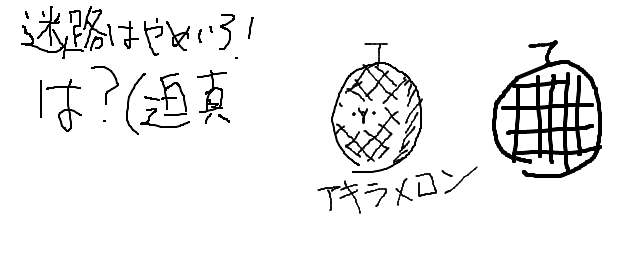 迷路はやめいろ!
は?(迫真
アキラメロン